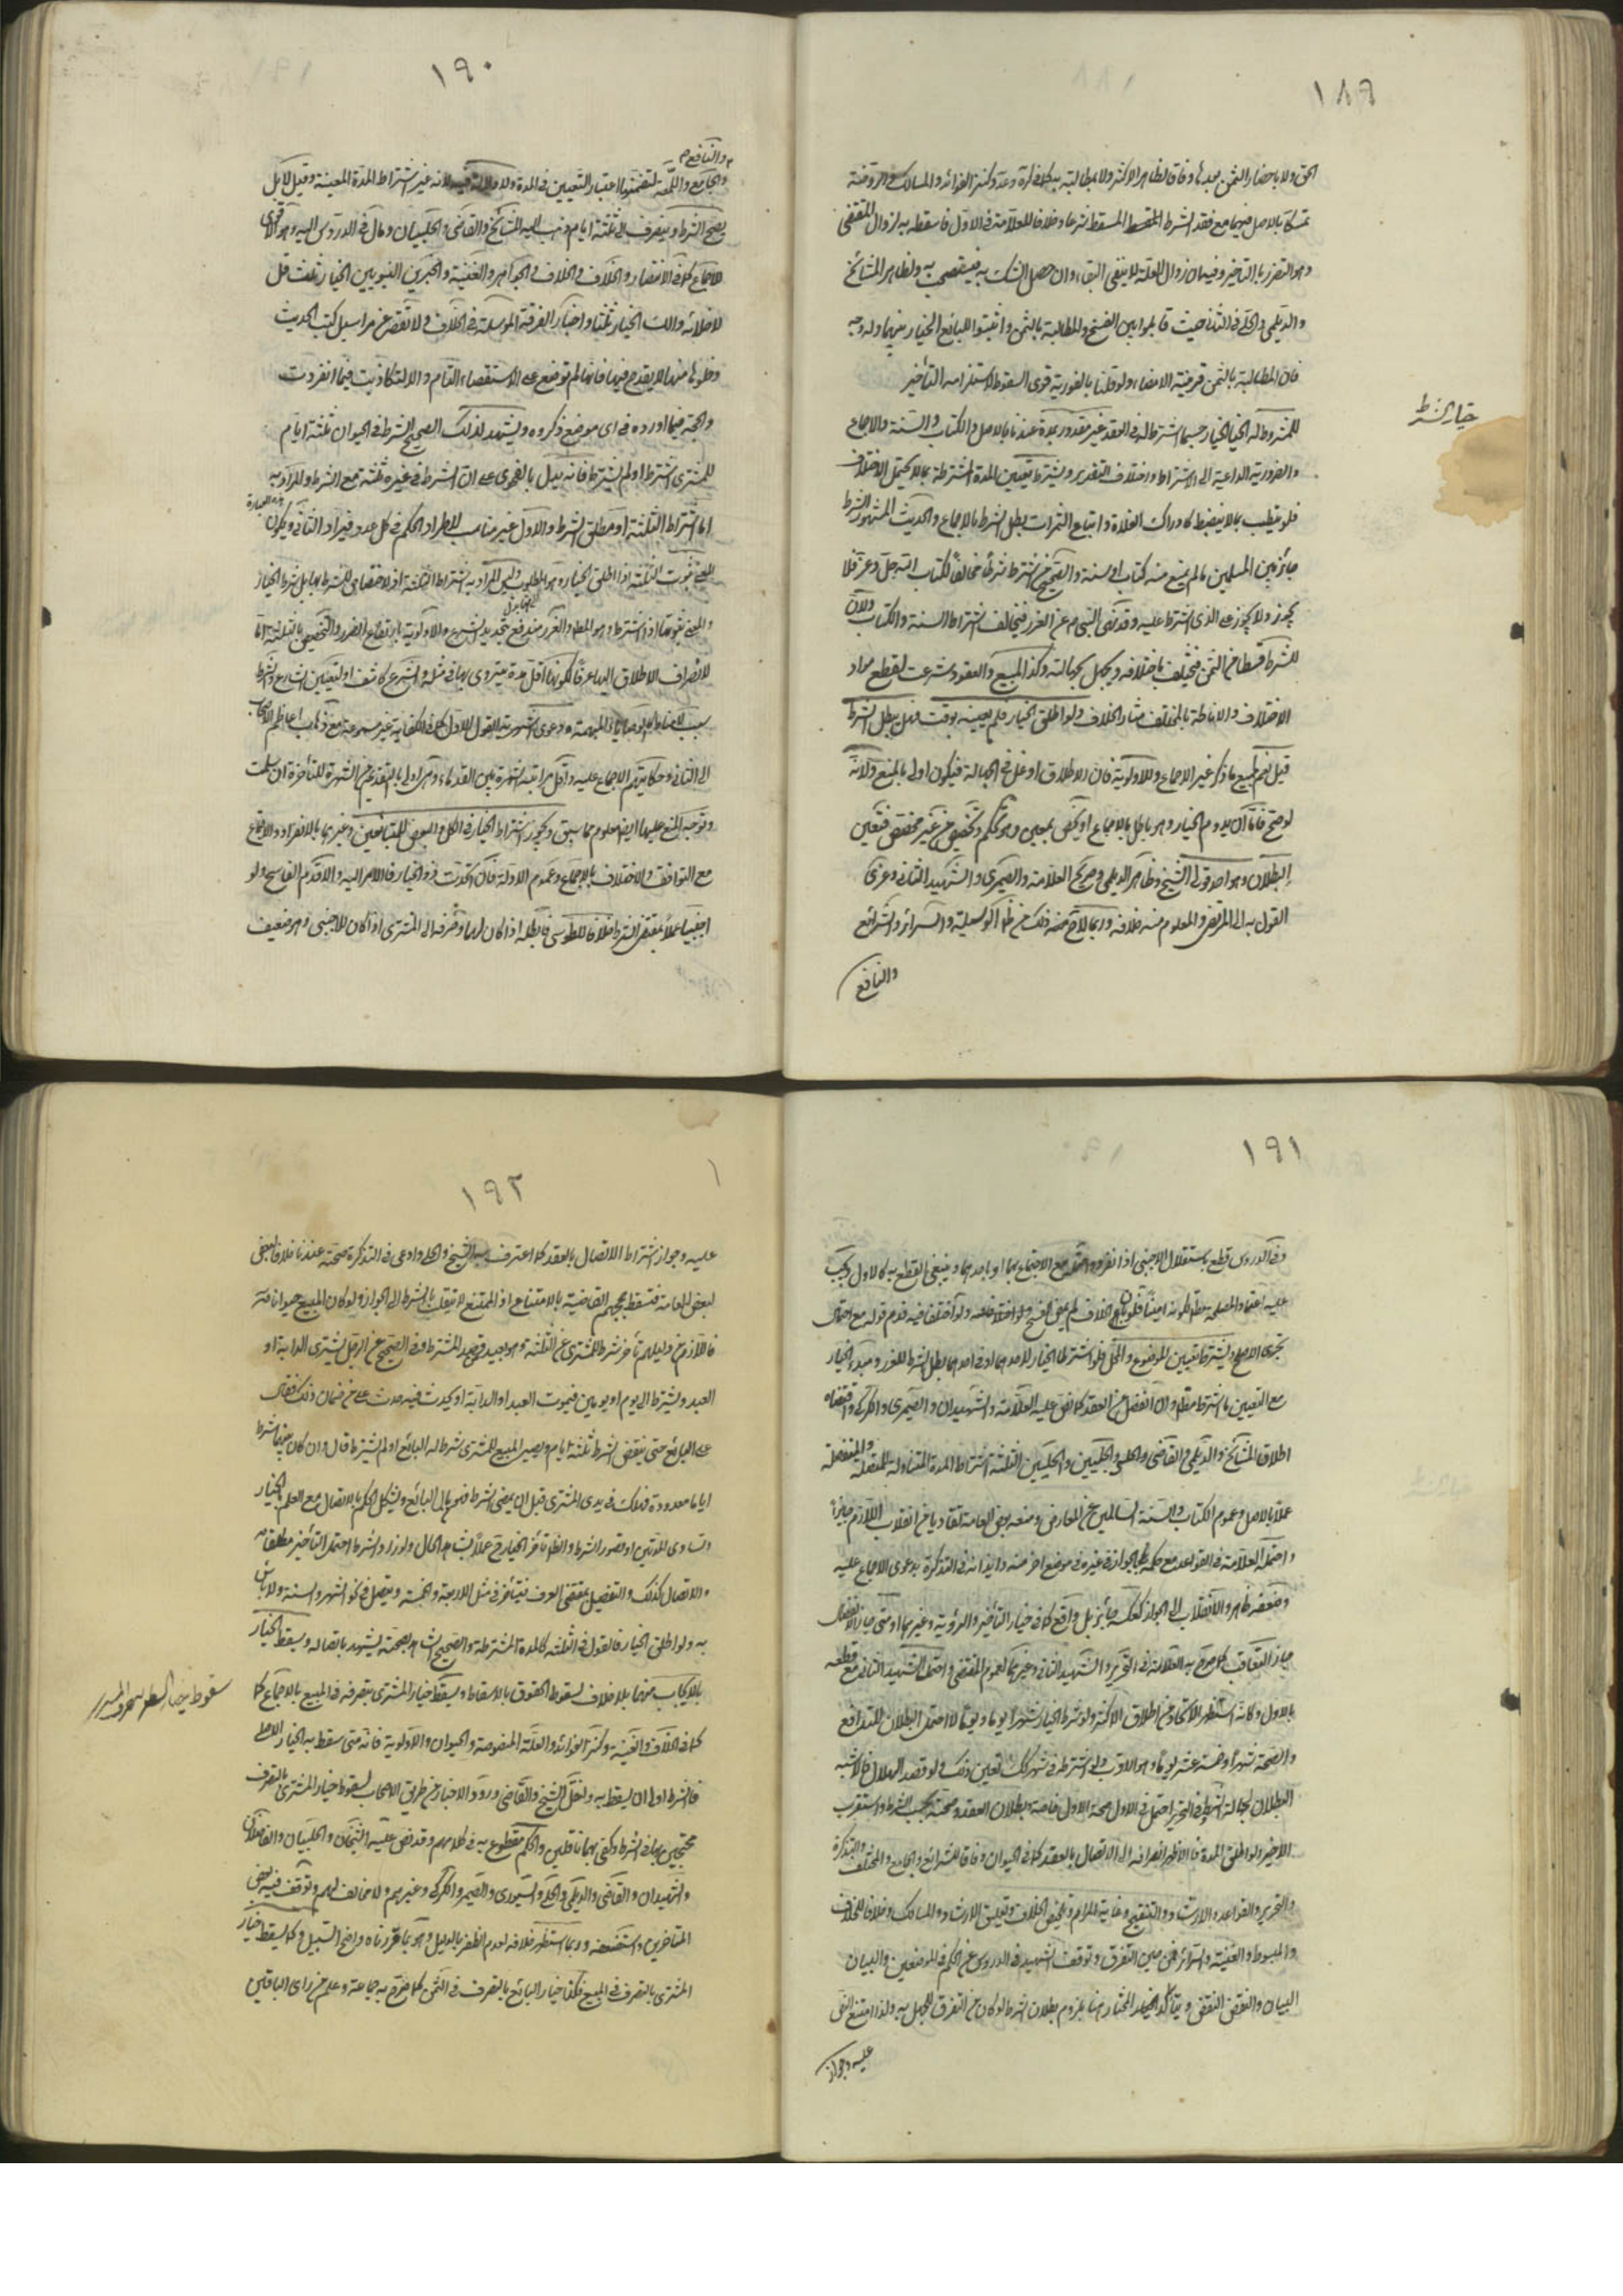 ١٨٩
الحق ولا باحضار الثمن بعدها وفاقا لظاهر الاكثر ولا بمطالبته به كما في كره وعد وكنز الفوائد والمسالك والروضة
تمسكا بالاصل فيهما مع فقد الشرط المسقط شرعا وخلافا للعلامة في الاول فاسقطه به لزوال المقتضى
وهو التضرر بالتاخير وفيه ان زوال العلة لا ينفى البقاء وان حصل الشك به فيستصحب به ولظاهر المشايخ
والديلمي والحلي في الثاني حيث قابلوا بين الفسخ والمطالبة بالثمن واثبتوا للبائع الخيار بينهما وله وجه
فان المطالبة بالثمن قرينة الامضاء ولو قلنا بالفورية قوى السقوط لاستلزامه التأخير
خيار الشرط
للمشروط له الخيار حسبما اشترطاه في العقد غير مقدور بمدة عندنا بالاصل والكتاب والسنة والاجماع
والضرورية الداعية الى الاشتراط واختلاف التقدير ويشترط تعيين المدة المشترطة بما لا يحتمل الاختلاف
فلو نيطت بما لا ينضبط كادراك الغلاة وايناع الثمرات بطل الشرط بالاجماع والحديث المشهور الشرط
جائز بين المسلمين ما لم يمنع منه كتاب او سنة والصحيح من اشترط شرطا مخالفا لكتاب الله جل وعز فلا
يجوز ولا يجوز على الذي اشترط عليه وقد نهى النبي ص عن الغرر فيخالف اشتراطه السنة والكتاب ولان
للشرط قسطا من الثمن فيختلف باختلافه ويجهل بجهالته وكذا المبيع والعقود شرعت لقطع مواد
الاختلاف والاناطة بالمختلف مثار الخلاف ولو اطلق الخيار فلم يعينه بوقت فهل يبطل الشرط
قيل نعم لجميع ما ذكر غير الاجماع وللاولوية فان الاطلاق اوغل في الجهالة فيكون اولى بالمنع ولانه
لو صح فاما ان يدوم الخيار وهو باطل بالاجماع او يختص ببعض وهو تحكم وتخصيص من غير مخصص فتعين
البطلان وهو احد قولى الشيخ وظاهر الديلمي وصريح العلامة والصيمرى والشهيد الثاني وعزى
القول به الى المرتضى والمعلوم منه خلافه وربما لاح منه ذلك من ظاهر الوسيلة والسرائر والشرائع
والنافع
١٩٠
والنافع
والجامع واللمعة لتضمنها اعتبار التعيين في المدة ولا دلالة فيه لانه غير اشتراط المدة المعينة وقيل لا بل
يصح الشرط وينصرف الى ثلثة ايام ذهب اليه المشايخ والقاضي والحلبيان ومال في الدروس اليه وهو الاقوى
للاجماع كما في الانتصار والخلاف في الخلاف في الجواهر والغنية والخبرين النبويين الخيار ثلث قل
لا خلابة ولك الخيار ثلثا واخبار الفرقة المرسلة في الخلاف ولا تقصر عن مراسيل كتب الحديث
وخلوها منها لا يقدح فيها فانها لم توضع على الاستقصاء التام والا لتكاذبت فيما انفردت
والحجة فيما اورده في اى موضع ذكروه ويشهد لذلك الصحيح الشرط في الحيوان ثلثة ايام
للمشترى اشترط او لم يشترط فانه يدل بالفحوى على ان الشرط في غيره ثلثة مع الشرط والمراد به
اما اشتراط الثلثة او مطلق الشرط والاول غير مناسب لاطراد الحكم في كل عدد فيراد الثاني ويكون
المعنى ثبوت الثلثة اذا اطلق الخيار وهو المطلوب وليس المراد به اشتراط الثلثة اذ لا اختصاص للشرط بها بل شرط الخيار
والمعنى ثبوتها اذا اشترط وهو المطلوب والغرر مندفع بتحديد الشرع والاولوية بارتفاع الضرر والتخصيص بالثلثة اما
لانصراف الاطلاق اليها عرفا لكونها اقل مدة يتروى بها في مثله والشرع كاشف او لتعيين الشارع والشرط
سبب كالوصايا المبهمة ودعوى الشهرية للقول الاول كما في الكفاية غير مسموعة مع ذهاب اعاظم الاصحاب
الى الثاني وحكايتهم الاجماع عليه واقل مراتبه الشهرة بين القدماء وهي اولى بالتقديم من الشهرة للمتاخرة ان سلمت
وتوجه المنع عليها ايضا معلوم مما سبق ويجوز اشتراط الخيار في الكل والبعض للمتبايعين وغيرهما بالانفراد والاجتماع
مع التوافق والاختلاف بالاجماع وعموم الادلة فان اتحدت ذو الخيار فالامر اليه والا قدم الفاسخ ولو
اجنبيا عملا بمقتضى الشرط خلافا للطوسي فابطله اذا كان لهما وصرفه الى المشترى اذا كان للاجنبى وهو ضعيف
١٩١
وفي الدروس قطع باستقلال الاجنبى اذا انفرد مع الاجتماع بهما او باحدهما وينبغى القطع به كالاول ويجب
عليه اعتماد المصلحة مطلقا لكونه امينا فلو بان الخلاف لم يمض الفسخ ولو اختلفا فيه قدم قوله مع احتمال
تحرى الاصلح ويشترط تعيين الموضوع والمحل فلو اشترطا الخيار لاحدهما او في احدهما بطل الشرط للغرر ومبدء الخيار
مع التعيين ما اشترط مطلقا وان انفصل عن العقد كما نص عليه العلامة والشهيدان والصيمرى والكركى واقتضاه
اطلاق المشايخ والديلمي والقاضي والحلي والحلبيين والحلبيين الثلثة اشتراط المدة المتناولة للمتصلة والمنفصلة
عملا بالاصل وعموم الكتاب والسنة السالمين عن المعارض ومنعه بعض العامة تفاديا من انقلاب اللازم جائزا
واحتمله العلامة في القواعد مع حكمه بالجواز في غيره في موضع اخر منه وايذانه في التذكرة بدعوى الاجماع عليه
وضعفه ظاهر والانقلاب الى الجواز كعكسه جائز بل واقع كما في خيار التأخير والرؤية وغيرهما ومتى جاز الانفصال
جاز التعاقب كما صرح به العلامة في التحرير والشهيد الثاني وغيرهما لعموم المقتضى واحتمل الشهيد الثاني مع قطعه
بالاول وكانه استظهر الاتحاد من اطلاق الاكثر ولو شرط الخيار شهرا يوما ويوما لا احتمل البطلان للتدافع
والصحة شهرا وخمسة عشر يوما وهو الاقرب ولو اشترط في شهر كذلك تعين ذلك ولو قصد الهلال فالاشبه
البطلان لجهالة الشرط وفي التحرير احتمل في الاول صحة الاول خاصة وبطلان العقد وصحته بحسب الشرط واستقرب
الاخير ولو اطلق المدة فالاظهر انصرافه الى الاتصال بالعقد كما في الحيوان وفاقا للشرائع والجامع والمختلف والتذكرة
والتحرير والقواعد والارشاد والتنقيح وغاية المرام وتلخيص الخلاف وتعليق الارشاد والمسالك وخلافا للخلاف
والمبسوط والغنية والسرائر فمن حين التفرق وتوقف الشهيد في الدروس عن الحكم في الموضعين والبيان
البيان والنقض النقض ويتأكد الخيار المختار هنا بلزوم بطلان الشرط لو كان من التفرق للجهل به ولذا امتنع النص
عليه وجواز
١٩٢
عليه وجواز اشتراط الاتصال بالعقد كما اعترف به الشيخ والحلي وادعى في التذكرة صحته عندنا خلافا لبعض
لبعض العامة فتسقط حججهم القاضية بالامتناع اذ الممتنع لا ينقلب بالشرط الى الجواز ولو كان المبيع حيوانا فانه
فاللازم من دليلهم تأخر شرط المشترى عن الثلثة وهو بعيد قصد المشترط وفي الصحيح عن الرجل يشترى الدابة او
العبد ويشترط الى يوم او يومين فيموت العبد او الدابة او يحدث فيه حدث على من ضمان ذلك فقال
على البائع حتى ينقضى الشرط ثلثة ايام ويصير المبيع للمشترى شرط له البائع او لم يشترط قال وان كان بينهما شرط
اياما معدودة فهلك في يدى المشترى قبل ان يمضى الشرط فهو من مال البائع ويشكل الحكم بالاتصال مع العلم بالخيار
وتساوى المدتين او قصور الشرط والظاهر تاخر الخيار ح عملا بشاهد الحال ولو زاد الشرط احتمل التأخير مطلقا
والاتصال كذلك والتفصيل بمقتضى العرف فيتأخر في مثل الاربعة والخمسة ويتصل في نحو الشهر والسنة ولا بأس
به ولو اطلق الخيار فالقول في الثلثة كالمدة المشترطة والصحيح الشاهد بصحته يشهد باتصاله ويسقط الخيار
سقوط خيار الشرط بتصرف المشترى
بالايجاب منهما بلا خلاف لسقوط الحقوق بالاسقاط ويسقط خيار المشترى بتصرفه في المبيع بالاجماع كما
كما في الخلاف والغنية وكنز الفوائد والعلة المنصوصة في الحيوان والاولوية فانه متى سقط به الخيار الاصلى
فالشرط اولى ان يسقط به ونقل الشيخ والقاضي ورود الاخبار من طريق الاصحاب بسقوط خيار المشترى بالتصرف
محتجين بها في الشرط وكفى بهما ناقلين والحكم مقطوع به في كلامهم وقد نص عليه الشيخان والحلبيان والفاضلان
والشهيدان والقاضي والديلمي والحلي والسيورى والصيمرى والكركى وغيرهم ولا مخالف لهم وتوقف فيه بعض
المتاخرين واستضعفه وربما استظهر خلافه لعدم الظفر بالدليل وهو بما قررناه واضح السبيل وكما يسقط خيار
المشترى بالتصرف في المبيع فكذا خيار البائع بالتصرف في الثمن كما صرح به جماعة وعلم من راى الباقين